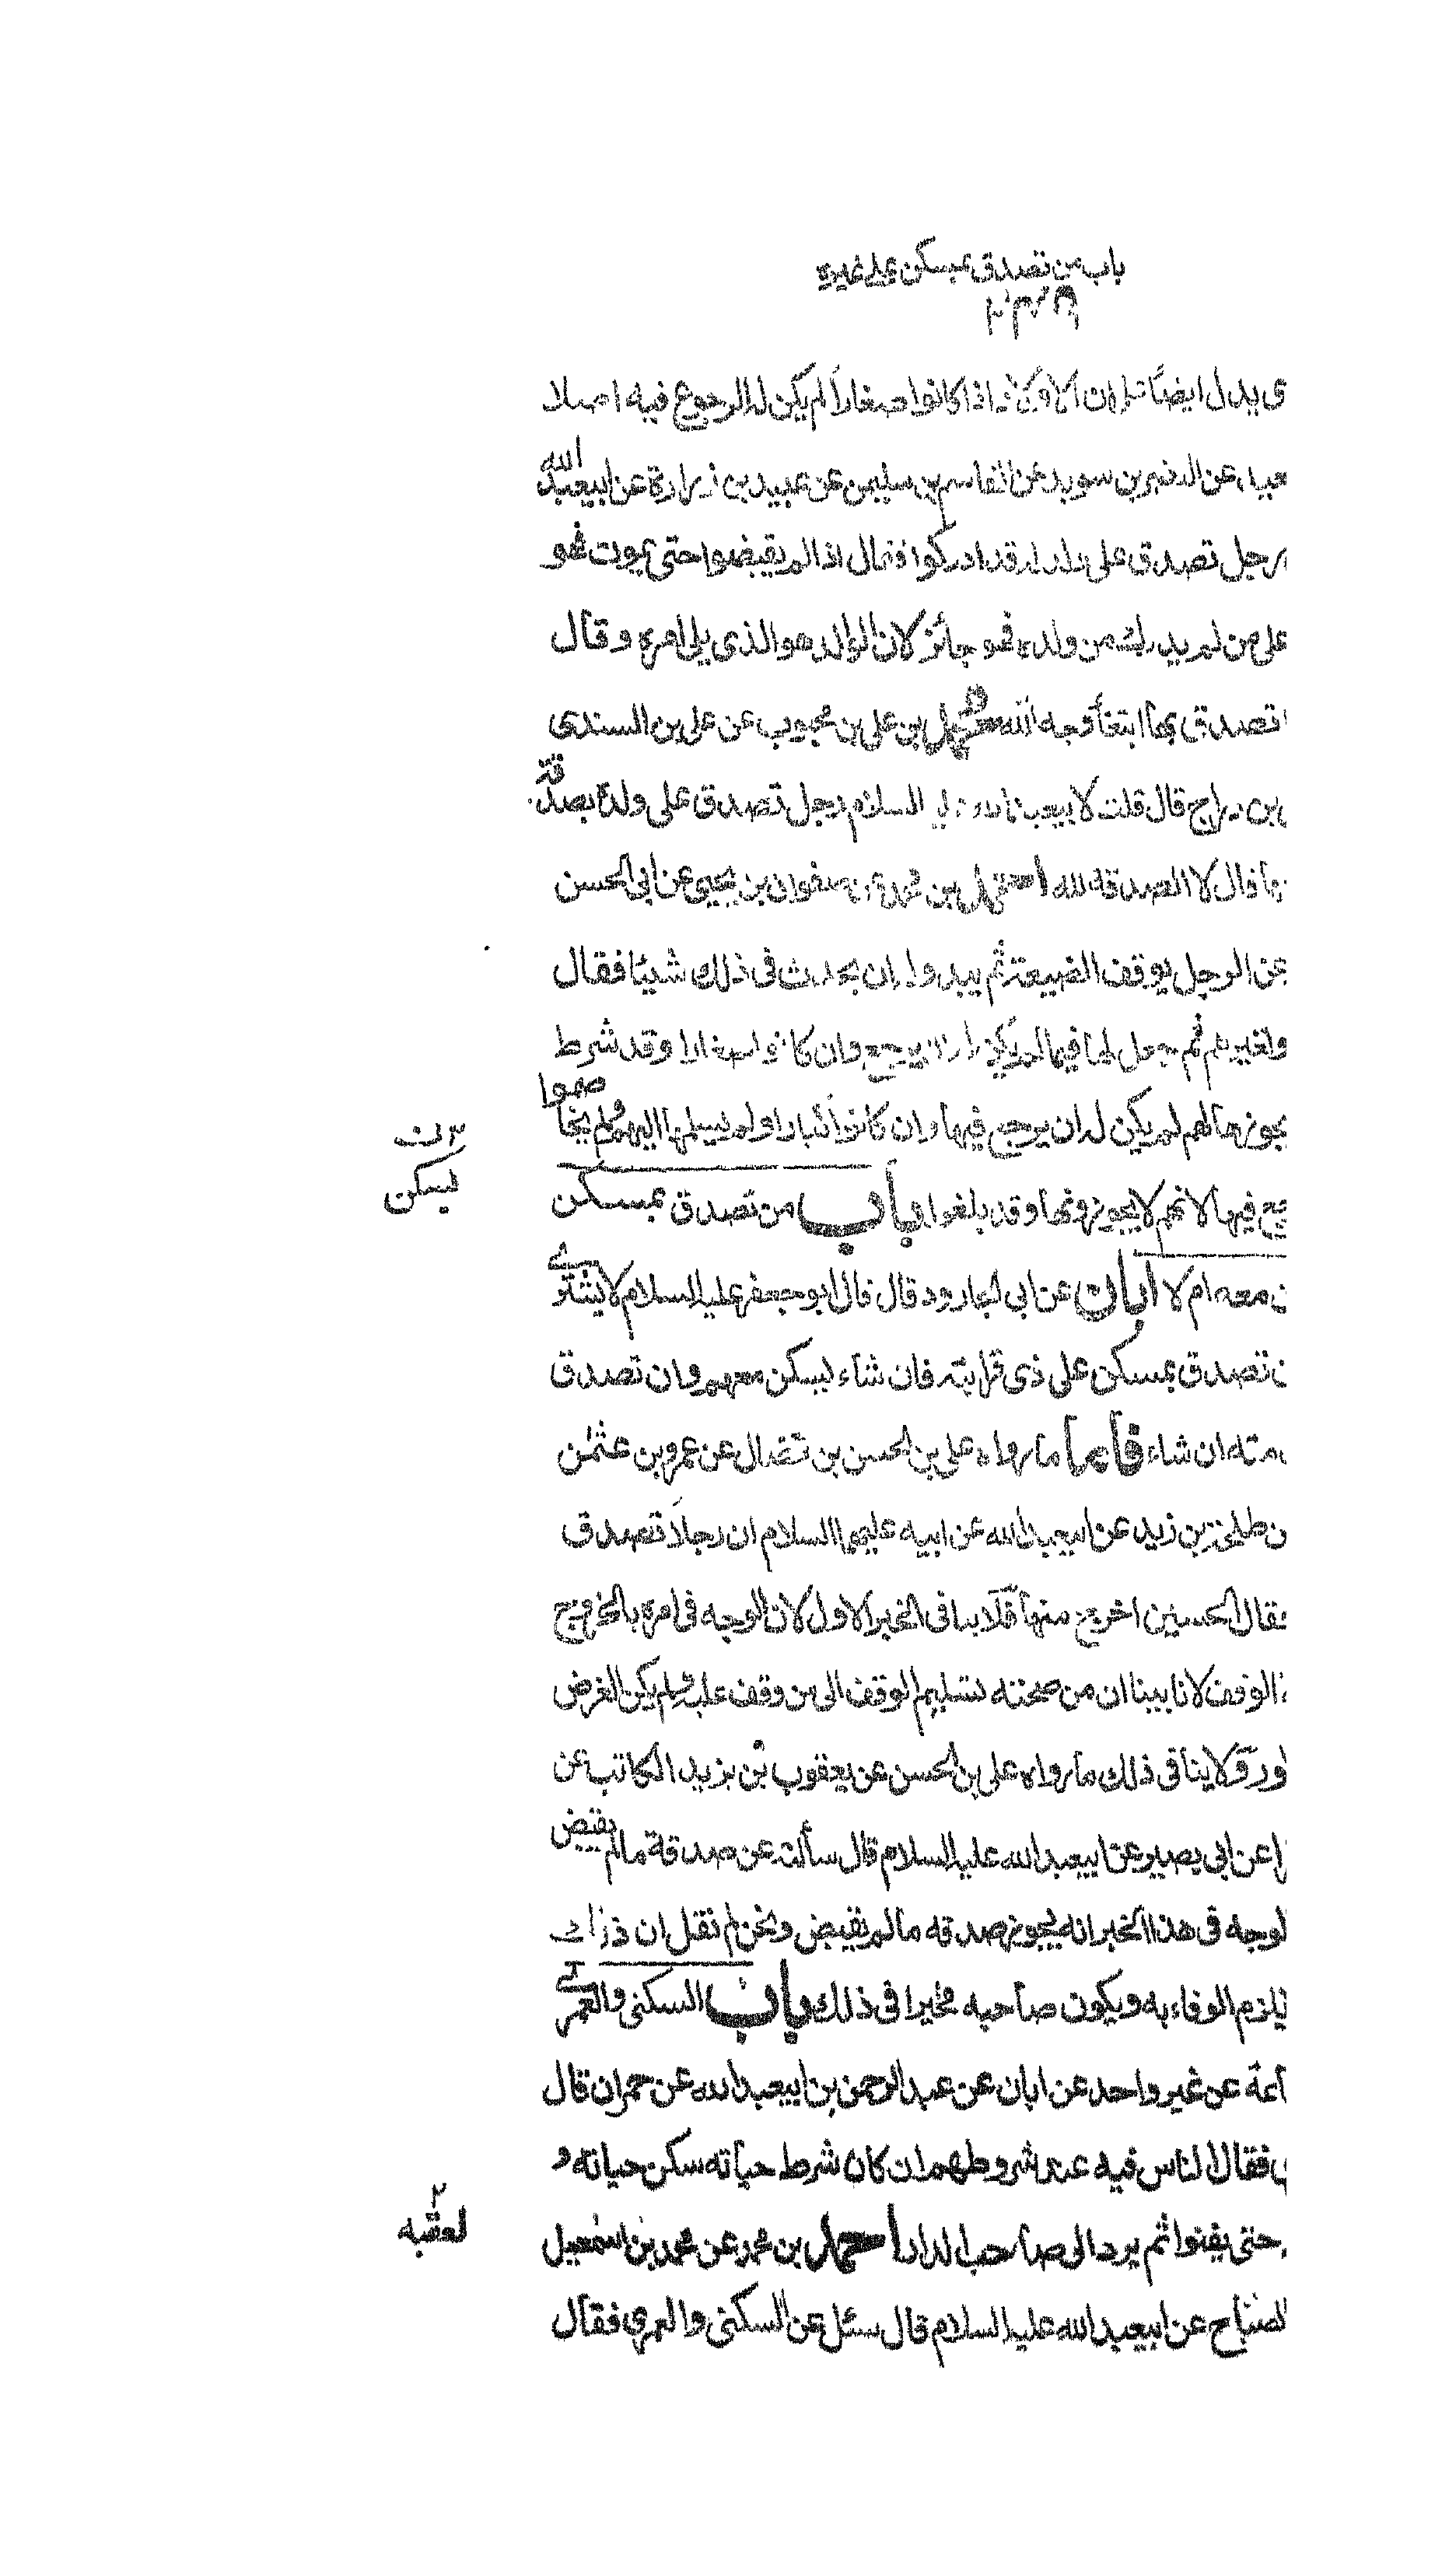 باب من تصدق بمسكن على غيره
ى يدل ايضًا ان اذا كانوا صغارا لم يكن له الرجوع فيه اصلا
عن النضر بن سويد عن القاسم بن سليمن عن عبيد بن زرارة عن ابيعبد الله
رجل تصدق على ولد له قد ادركوا فقال اذا لم يقبضوا حتى يموت فهو
على من لم يدرك من ولده فهو جائز لان الوالد هو الذى يلى امره وقال
تصدق بها ابتغآء وجه الله محمد بن على بن محبوب عن على بن السندى
بن دراج قال قلت لابيعبد الله عليه السلام رجل تصدق على ولده بصدقة
قال لا الصدقة لله احمد بن محمد عن صفوان بن يحيى عن ابى الحسن
عن الرجل يوقف الضيعة ثم يبدو له ان يحدث فى ذلك شيئا فقال
ولغيرهم ثم جعل لها قيما لم يكن له ان يرجع وان كانوا صغارا وقد شرط
يحوزها لهم لم يكن له ان يرجع فيها وان كانوا كبارا ولم يسلمها اليهم ولم يخاصموا
فيها لانهم لا يحوزونها وقد بلغوا باب من تصدق بمسكن
معه ام لا ابان عن ابى الجارود قال قال ابو جعفر عليه السلام لا يشترى
تصدق بمسكن على ذى قرابته فان شاء ليسكن معهم وان تصدق
ان شاء فاما ما رواه على بن الحسن بن فضال عن عمرو بن عثمن
طلحة بن زيد عن ابيعبد الله عن ابيه عليهما السلام ان رجلا تصدق
فقال الحسين اخرج منها فلا ينافى الخبر الاول لان الوجه فى امره بالخروج
الوقف لانا بينا ان من صحته تسليم الوقف الى من وقف عليه ولم يكن الغرض
ولا ينافى ذلك ما رواه على بن الحسن عن يعقوب بن يزيد الكاتب عن
عن ابى بصير عن ابيعبد الله عليه السلام قال سألته عن صدقة ما لم يقبض
لوجه فى هذا الخبر انه يجوز صدقه ما لم يقبض ونحن لم نقل ان ذلك
يلزم الوفاء به ويكون صاحبه مخيرا فى ذلك باب السكنى والعمرى
عن غير واحد عن ابان عن عبد الرحمن بن ابيعبد الله عن حمران قال
فقال الناس فيه عند شروطهم ان كان شرط حياته سكن حياته و
حتى يفنوا ثم يرد الى صاحب الدار احمد بن محمد عن محمد بن اسمعيل
الصباح عن ابيعبد الله عليه السلام قال سئل عن السكنى والعمرى فقال
ليسكن
لعقبه